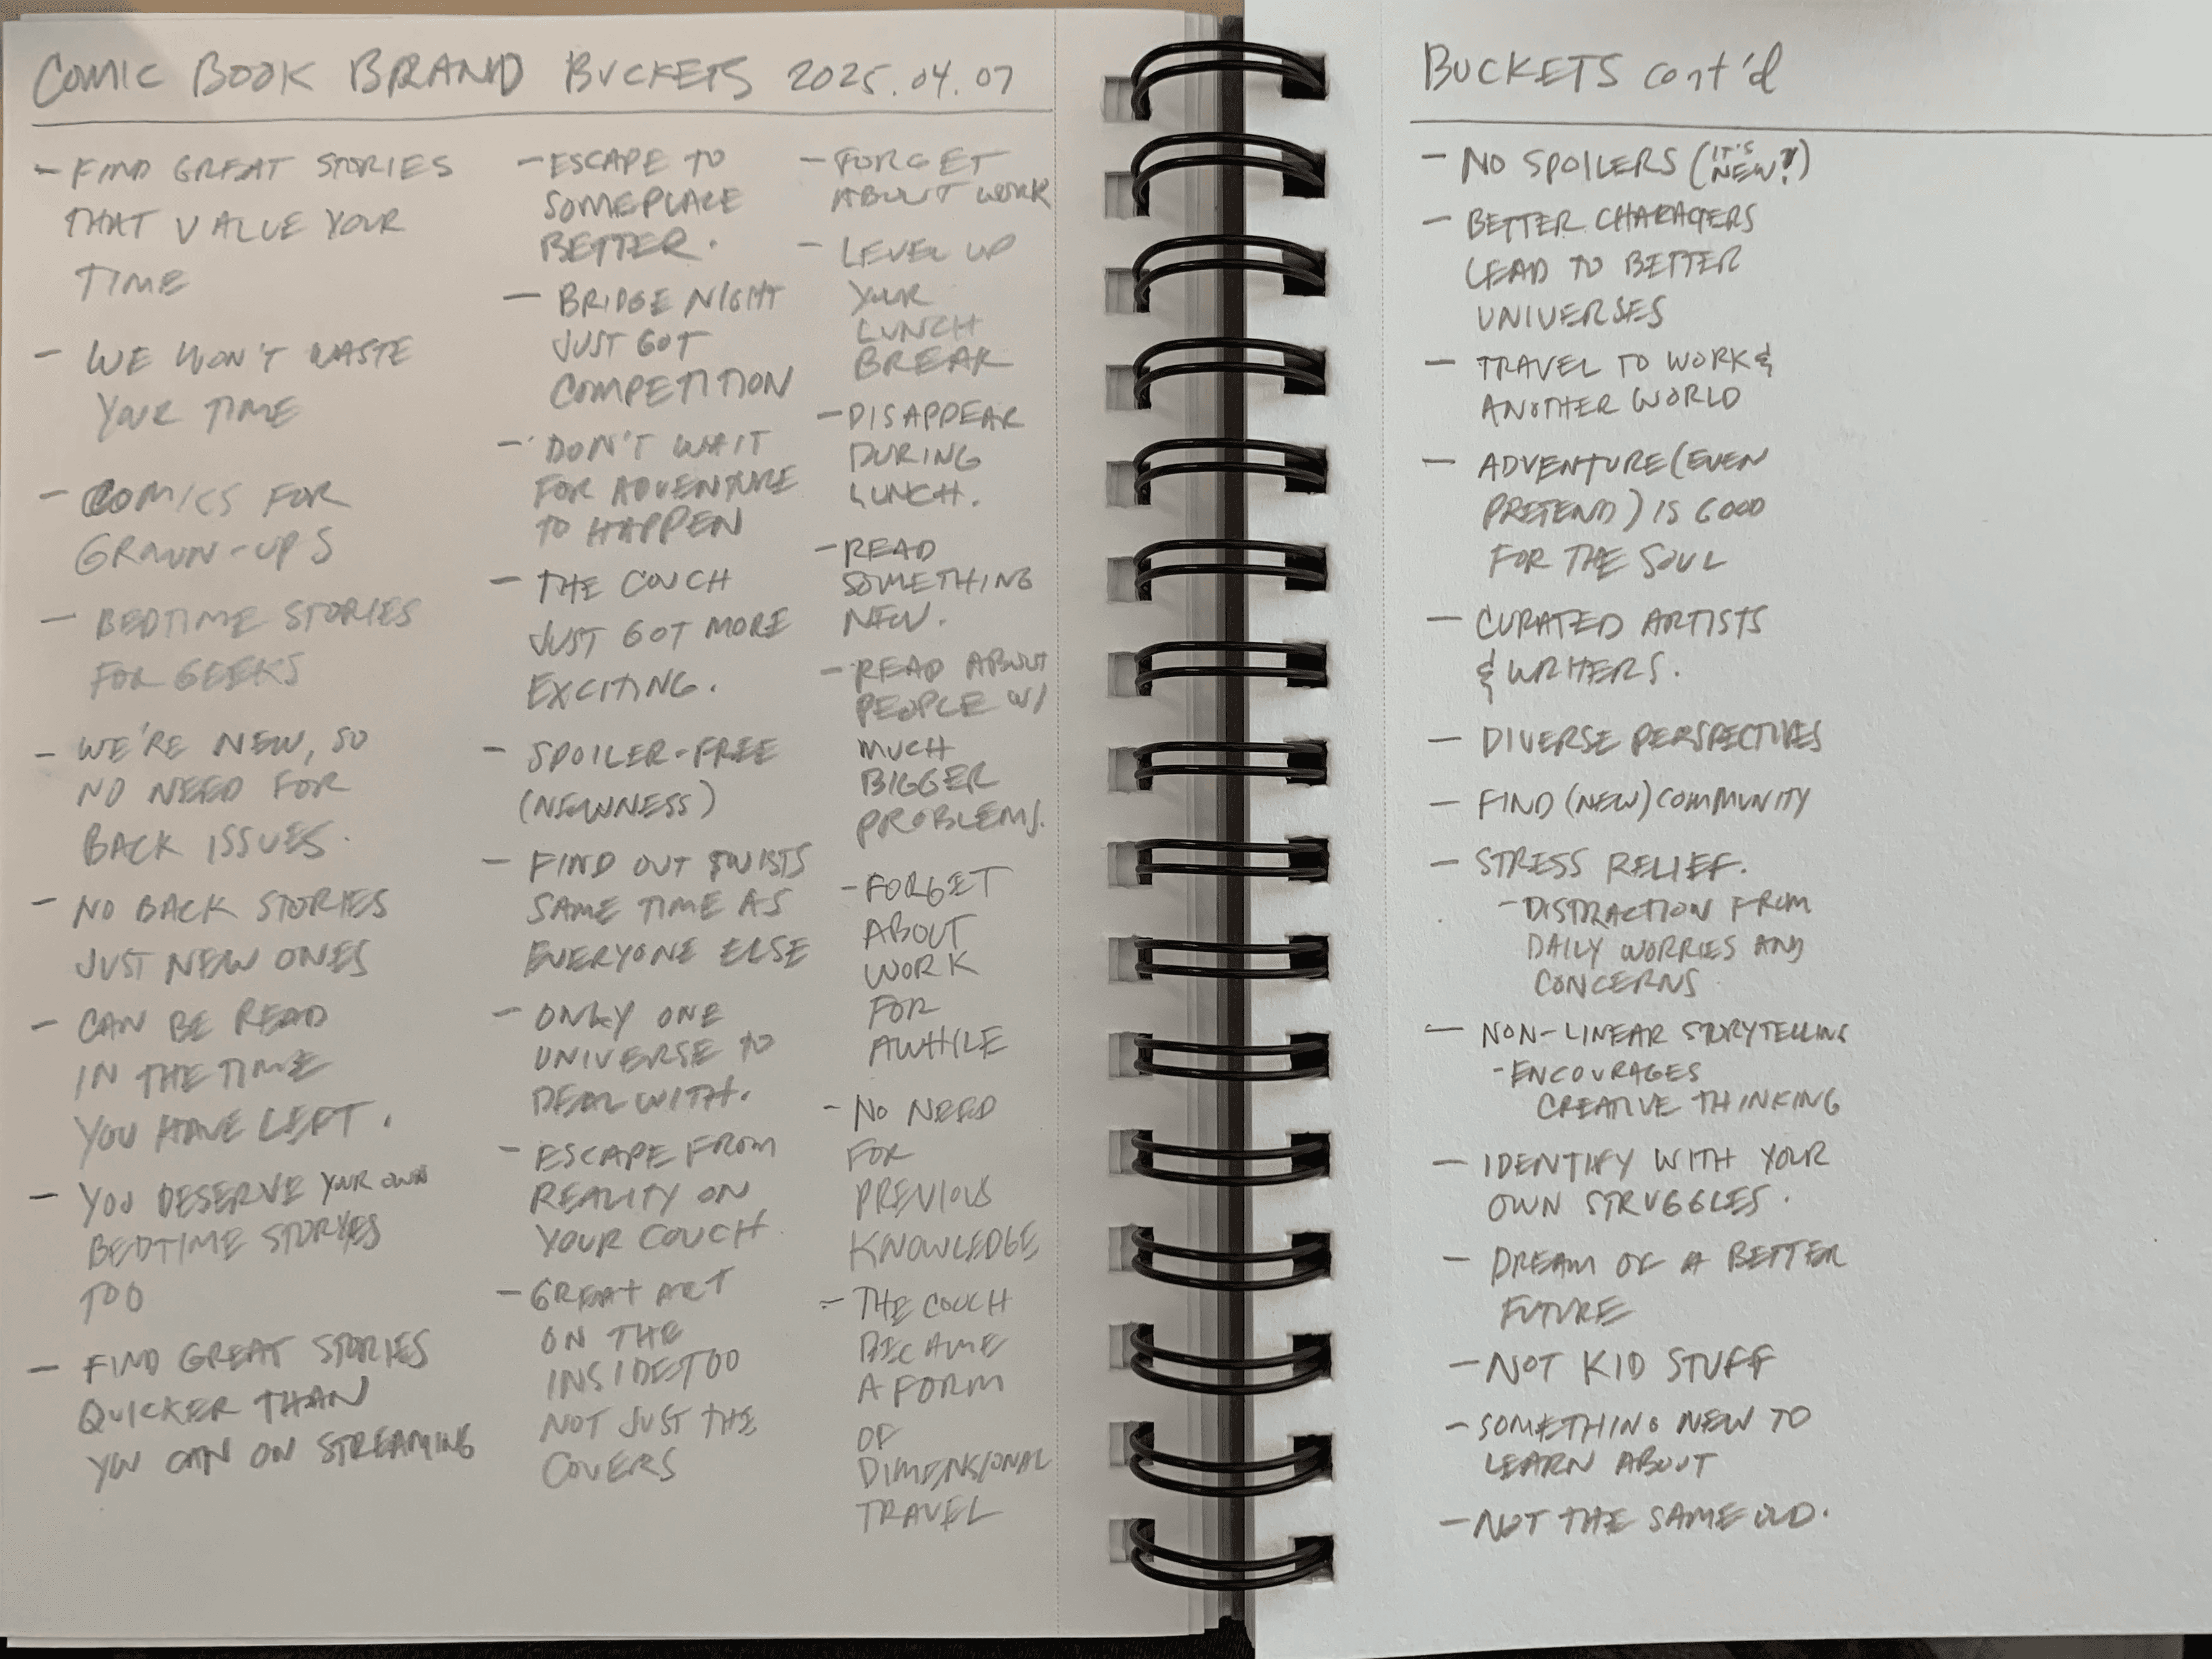 COMIC BOOK BRAND BUCKETS 2025.04.07
- FIND GREAT STORIES
THAT VALUE YOUR
TIME
- WE WON'T WASTE
YOUR TIME
- COMICS FOR
GROWN-UPS
- BEDTIME STORIES
FOR GEEKS
- WE'RE NEW, SO
NO NEED FOR
BACK ISSUES.
- NO BACK STORIES
JUST NEW ONES
- CAN BE READ
IN THE TIME
YOU HAVE LEFT.
- YOU DESERVE YOUR OWN
BEDTIME STORIES
TOO
- FIND GREAT STORIES
QUICKER THAN
YOU CAN ON STREAMING
- ESCAPE TO
SOMEPLACE
BETTER.
- BRIDGE NIGHT
JUST GOT
COMPETITION
- DON'T WAIT
FOR ADVENTURE
TO HAPPEN
- THE COUCH
JUST GOT MORE
EXCITING.
- SPOILER-FREE
(NEWNESS)
- FIND OUT TWISTS
SAME TIME AS
EVERYONE ELSE
- ONLY ONE
UNIVERSE TO
DEAL WITH.
- ESCAPE FROM
REALITY ON
YOUR COUCH
- GREAT ART
ON THE
INSIDE TOO
NOT JUST THE
COVERS
- FORGET
ABOUT WORK
- LEVEL UP
YOUR
LUNCH
BREAK
- DISAPPEAR
DURING
LUNCH.
- READ
SOMETHING
NEW.
- READ ABOUT
PEOPLE W/
MUCH
BIGGER
PROBLEMS.
- FORGET
ABOUT
WORK
FOR
AWHILE
- NO NEED
FOR
PREVIOUS
KNOWLEDGE
- THE COUCH
BECAME
A FORM
OF
DIMENSIONAL
TRAVEL
BUCKETS cont'd
- NO SPOILERS (IT'S NEW?)
- BETTER CHARACTERS
LEAD TO BETTER
UNIVERSES
- TRAVEL TO WORK &
ANOTHER WORLD
- ADVENTURE (EVEN
PRETEND) IS GOOD
FOR THE SOUL
- CURATED ARTISTS
& WRITERS.
- DIVERSE PERSPECTIVES
- FIND (NEW) COMMUNITY
- STRESS RELIEF.
- DISTRACTION FROM
DAILY WORRIES AND
CONCERNS
- NON-LINEAR STORYTELLING
- ENCOURAGES
CREATIVE THINKING
- IDENTIFY WITH YOUR
OWN STRUGGLES.
- DREAM OF A BETTER
FUTURE
- NOT KID STUFF
- SOMETHING NEW TO
LEARN ABOUT
- NOT THE SAME OLD.